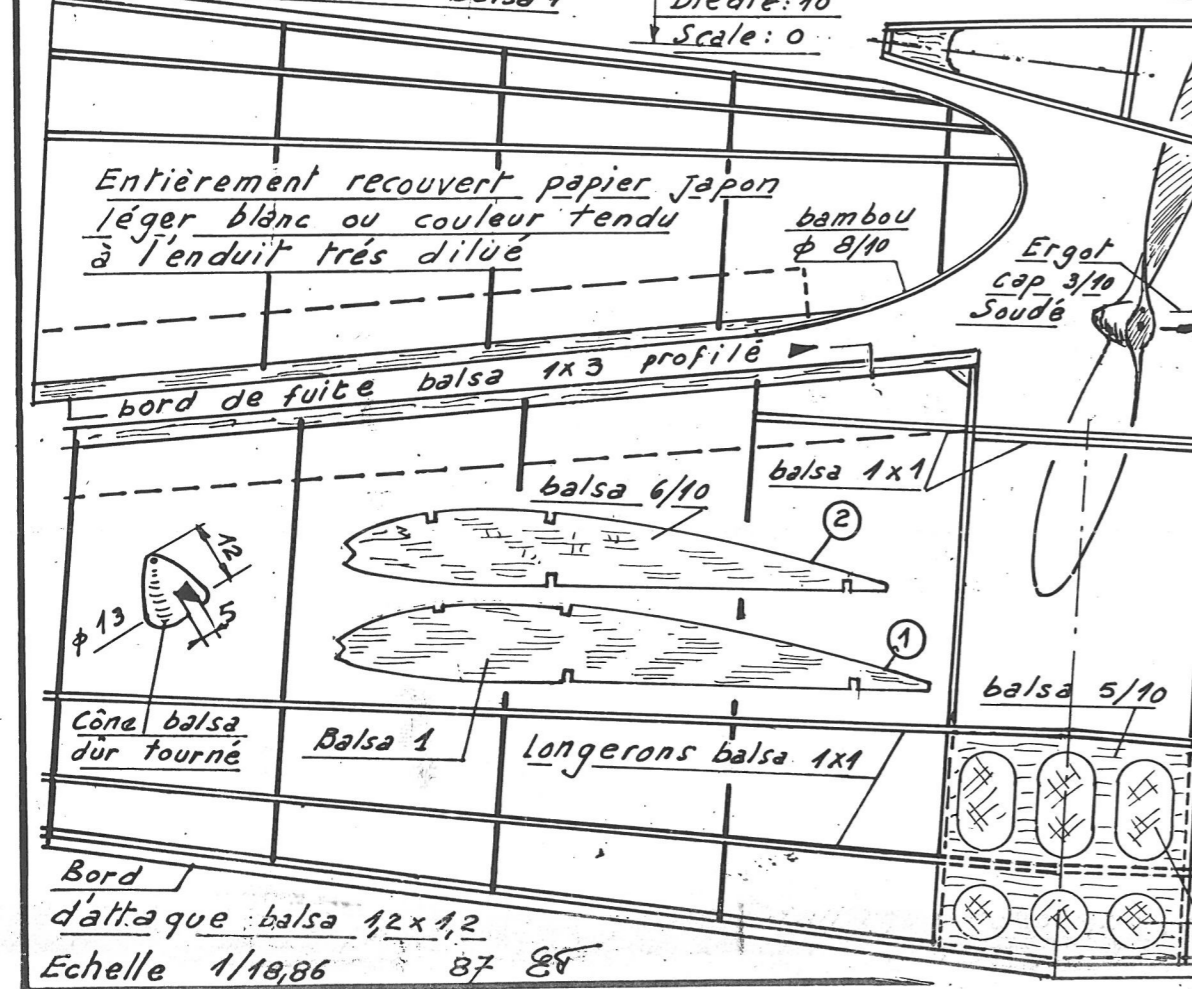 balsa 1
Scale: 0
Entièrement recouvert papier Japon
léger blanc ou couleur tendu
à l'enduit trés dilué
bambou
ϕ 8/10
Ergot
cap 3/10
Soudé
bord de fuite balsa 1x3 profilé
balsa 1x1
balsa 6/10
2
12
ϕ 13
5
1
balsa 5/10
Cône balsa
dûr tourné
Balsa 1
Longerons balsa 1x1
Bord
d'attaque balsa 1,2 x 1,2
Echelle 1/18,86 87